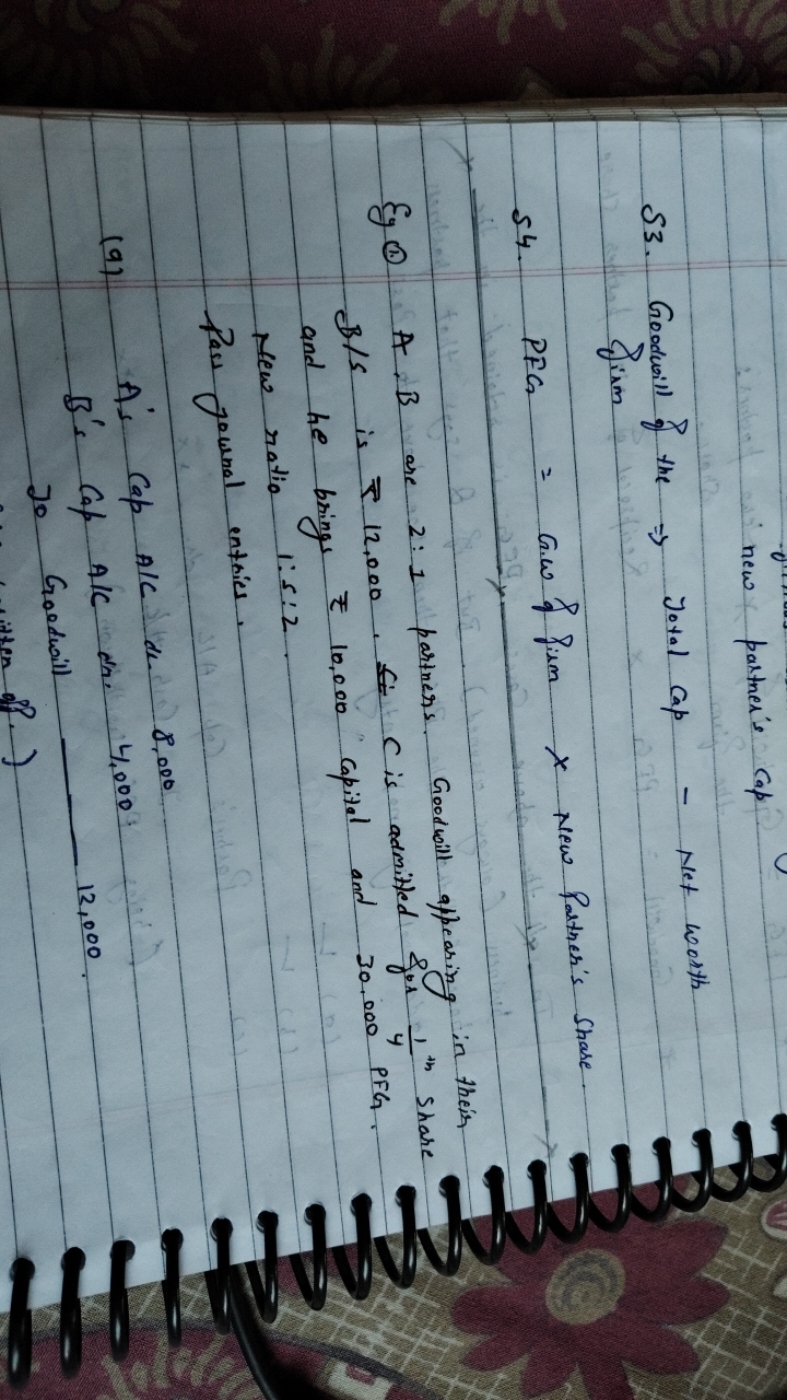 new partner's cap
S3. Goodwill of the ⇒ Total Cap - Net worth
firm
S4. PFG = G.W of firm x New Partner's Share.
Eg ①. A, B are 2:1 partners. Goodwill appearing in their
B/S is ₹ 12,000. C is admitted for 1/4 th share
and he brings ₹ 10,000 capital and 30,000 PFG.
New ratio 1:5:2.
Pass journal entries.
(a) A's Cap A/c dr. 8,000
B's Cap A/c dr. 4,000
To Goodwill 12,000.
written off.)